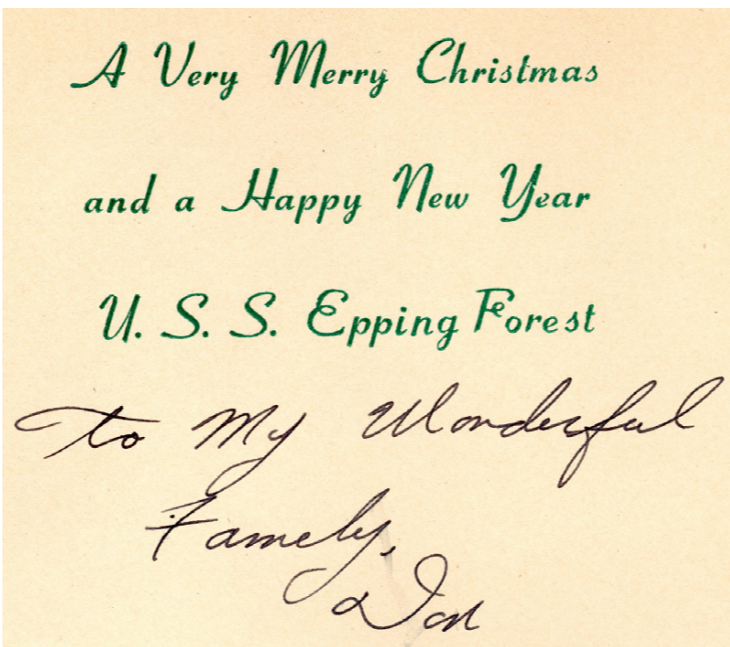 A Very Merry Christmas
and a Happy New Year
U. S. S. Epping Forest
To My Wonderful
Family,
Don